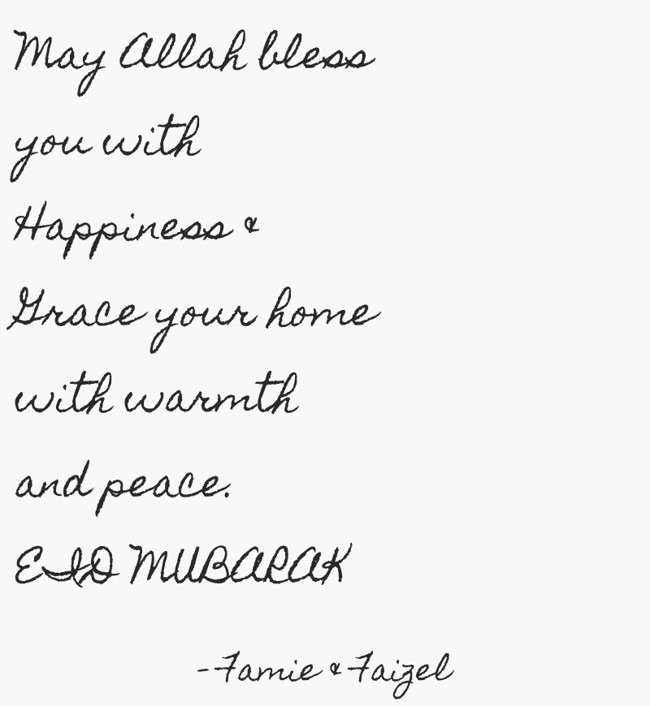 May Allah bless
you with
Happiness &
Grace your home
with warmth
and peace.
EID MUBARAK
-Famie & Faizel